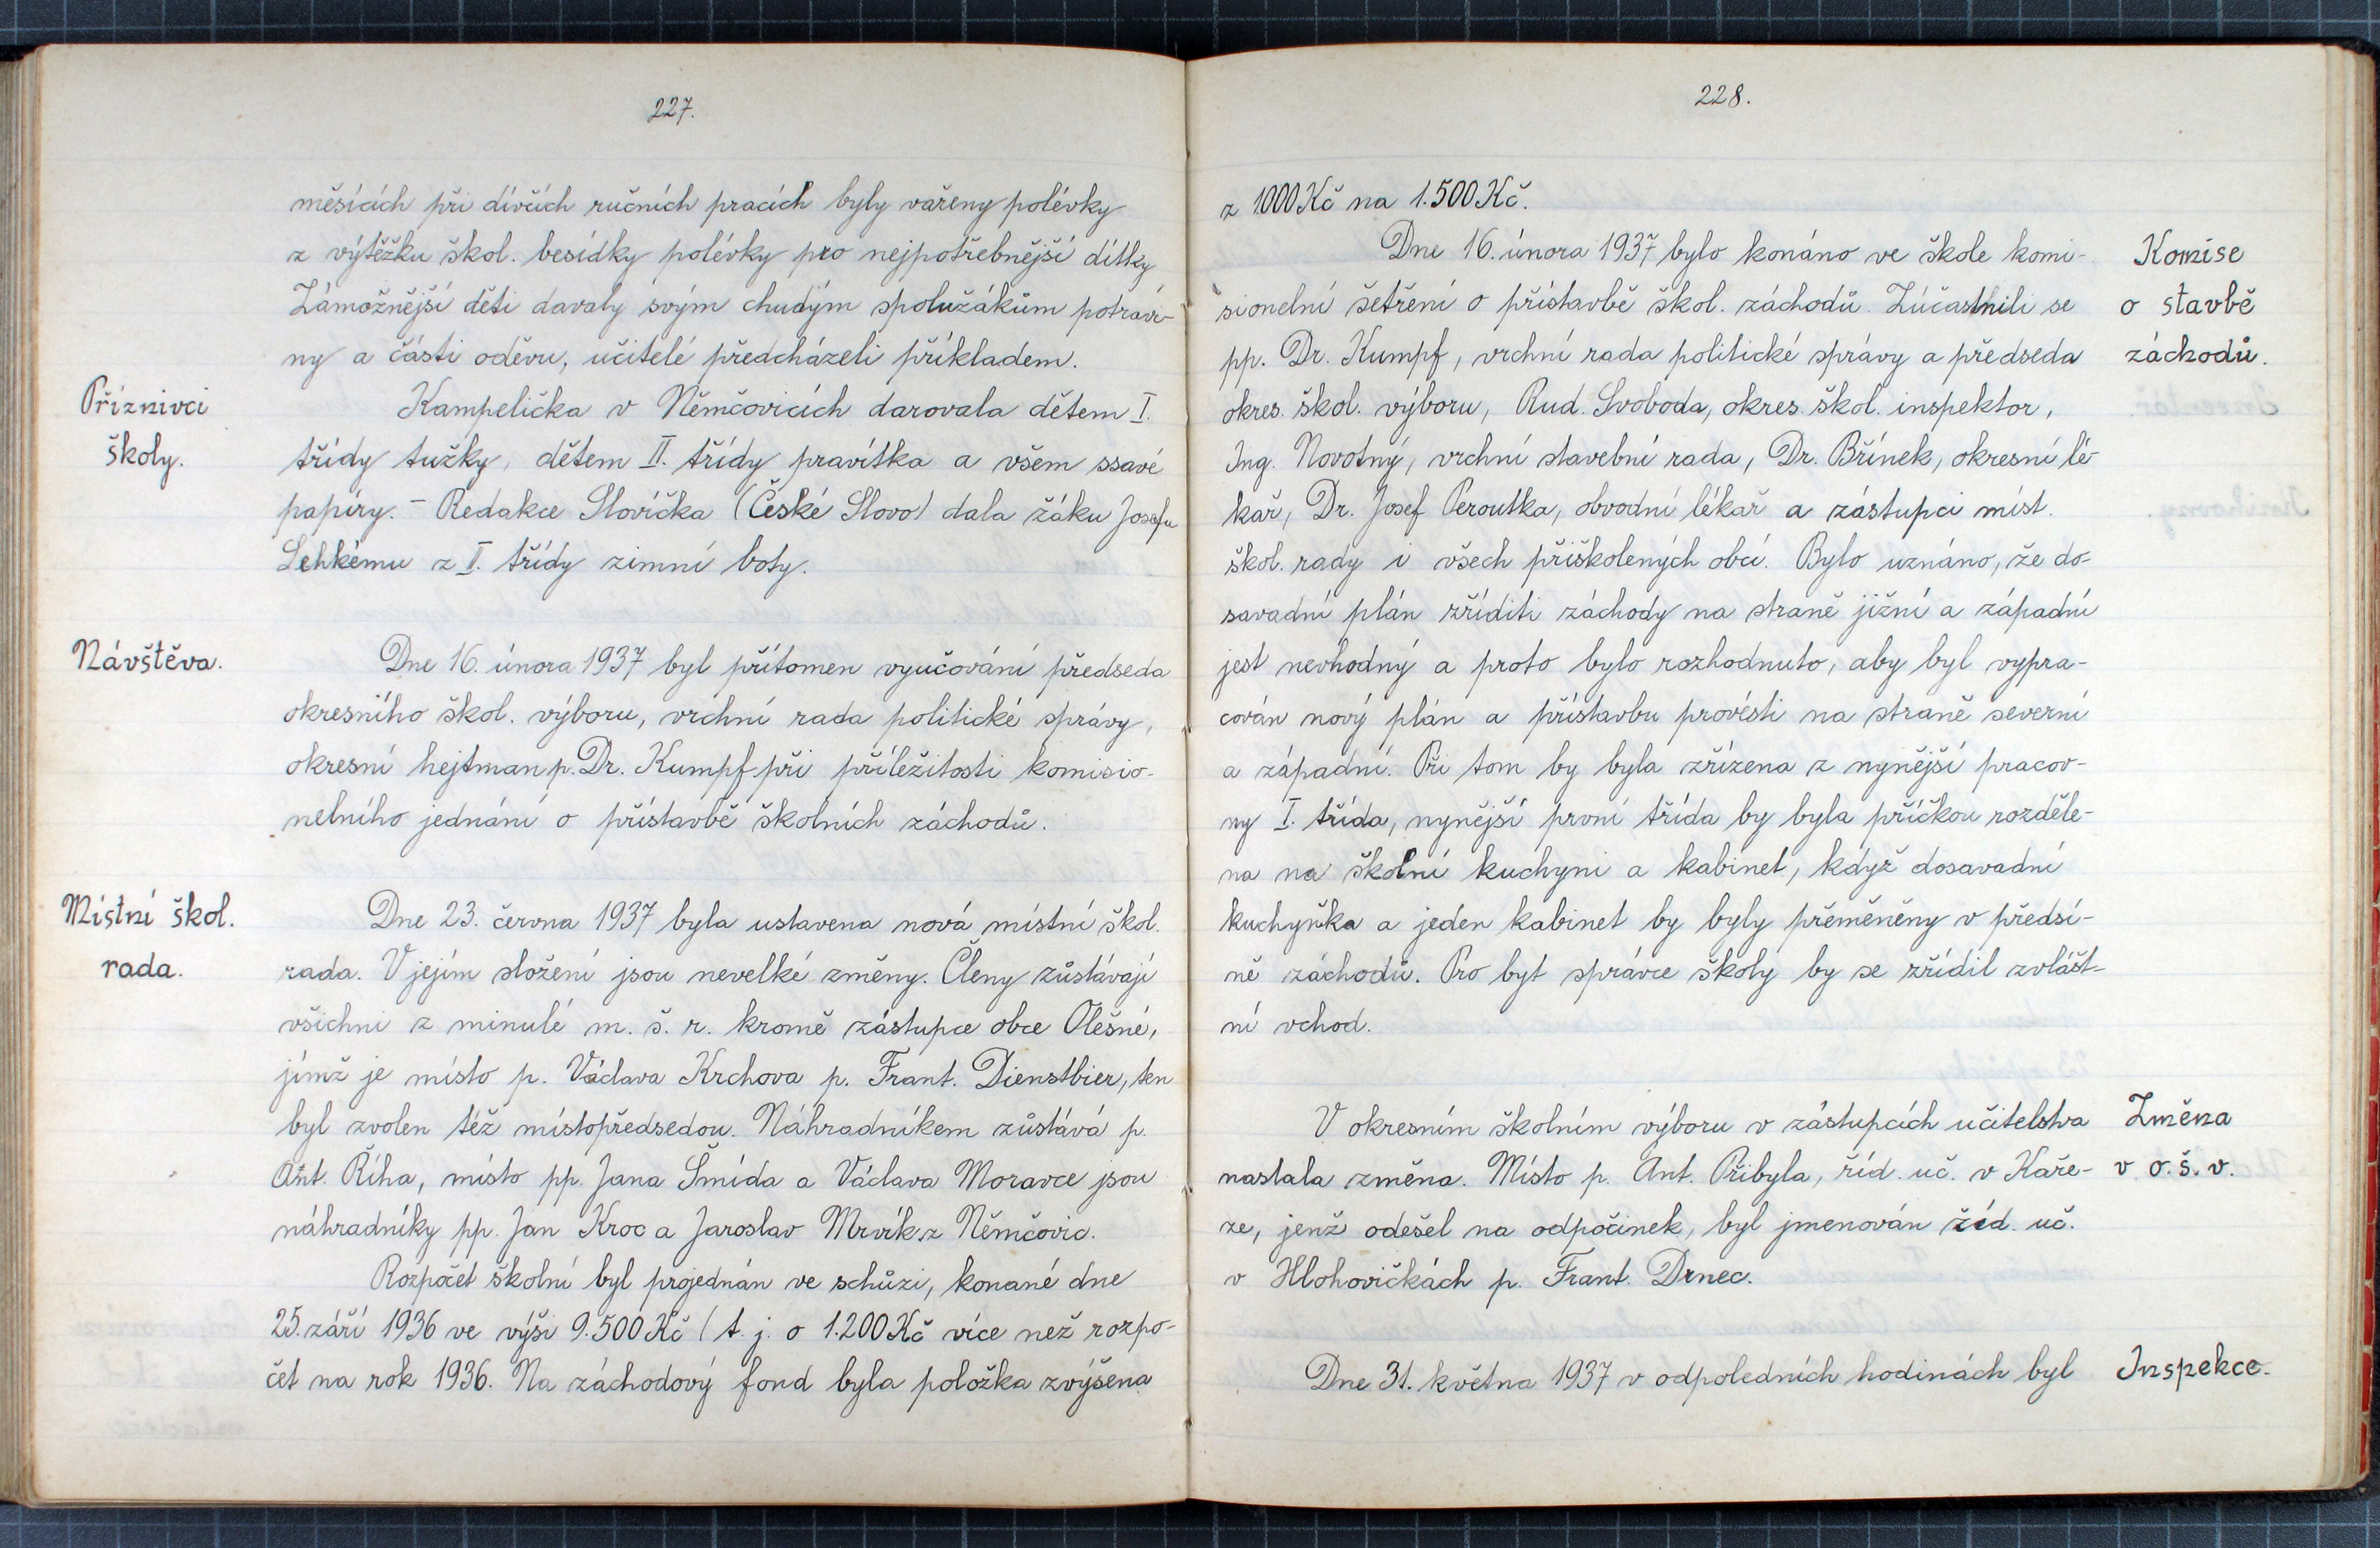 227.
měsících při dívčích ručních pracích byly vařeny polévky
z výtěžku škol. besídky polévky pro nejpotřebnější dítky
Zámožnější děti davaly svým chudým spolužákům potravi-
ny a části oděvu, učitelé předcházeli příkladem.
Příznivci
školy.
Kampelička v Němčovicích darovala dětem I.
třídy tužky, dětem II. třídy pravítka a všem ssavé
papíry. - Redakce Slovíčka (České Slovo) dala žáku Josefu
Lehkému z II. třídy zimní boty.
Návštěva.
Dne 16. února 1937 byl přítomen vyučování předseda
okresního škol. výboru, vrchní rada politické správy,
okresní hejtman p. Dr. Kumpf při příležitosti komisio-
nelního jednání o přístavbě školních záchodů.
Místní škol.
rada.
Dne 23. června 1937 byla ustavena nová místní škol.
rada. V jejím složení jsou nevelké změny. Členy zůstávají
všichni z minulé m. š. r. kromě zástupce obce Olešné,
jímž je místo p. Václava Krchova p. Frant. Dienstbier, ten
byl zvolen též místopředsedou. Náhradníkem zůstává p.
Ant. Říha, místo pp. Jana Šmída a Václava Moravce jsou
náhradníky pp. Jan Kroc a Jaroslav Mrvík z Němčovic.
Rozpočet školní byl projednán ve schůzi, konané dne
25. září 1936 ve výši 9.500 Kč ( t. j. o 1.200 Kč více než rozpo-
čet na rok 1936. Na záchodový fond byla položka zvýšena
228.
z 1000 Kč na 1.500 Kč.
Komise
o stavbě
záchodů.
Dne 16. února 1937 bylo konáno ve škole komi-
sionelní šetření o přístavbě škol. záchodů. Zúčastnili se
pp. Dr. Kumpf, vrchní rada politické správy a předseda
okres. škol. výboru, Rud. Svoboda, okres. škol. inspektor,
Ing. Novotný, vrchní stavební rada, Dr. Břínek, okresní lé-
kař, Dr. Josef Peroutka, obvodní lékař a zástupci míst.
škol. rady i všech přiškolených obcí. Bylo uznáno, že do-
savadní plán zříditi záchody na straně jižní a západní
jest nevhodný a proto bylo rozhodnuto, aby byl vypra-
cován nový plán a přístavbu provésti na straně severní
a západní. Při tom by byla zřízena z nynější pracov-
ny I. třída, nynější první třída by byla příčkou rozděle-
na na školní kuchyni a kabinet, když dosavadní
kuchyňka a jeden kabinet by byly přeměněny v předsí-
ně záchodů. Pro byt správce školy by se zřídil zvlášt-
ní vchod.
Změna
v o. š. v.
V okresním školním výboru v zástupcích učitelstva
nastala změna. Místo p. Ant. Přibyla, říd. uč. v Kaře-
ze, jenž odešel na odpočinek, byl jmenován říd. uč.
v Hlohovičkách p. Frant. Drnec.
Inspekce.
Dne 31. května 1937 v odpoledních hodinách byl